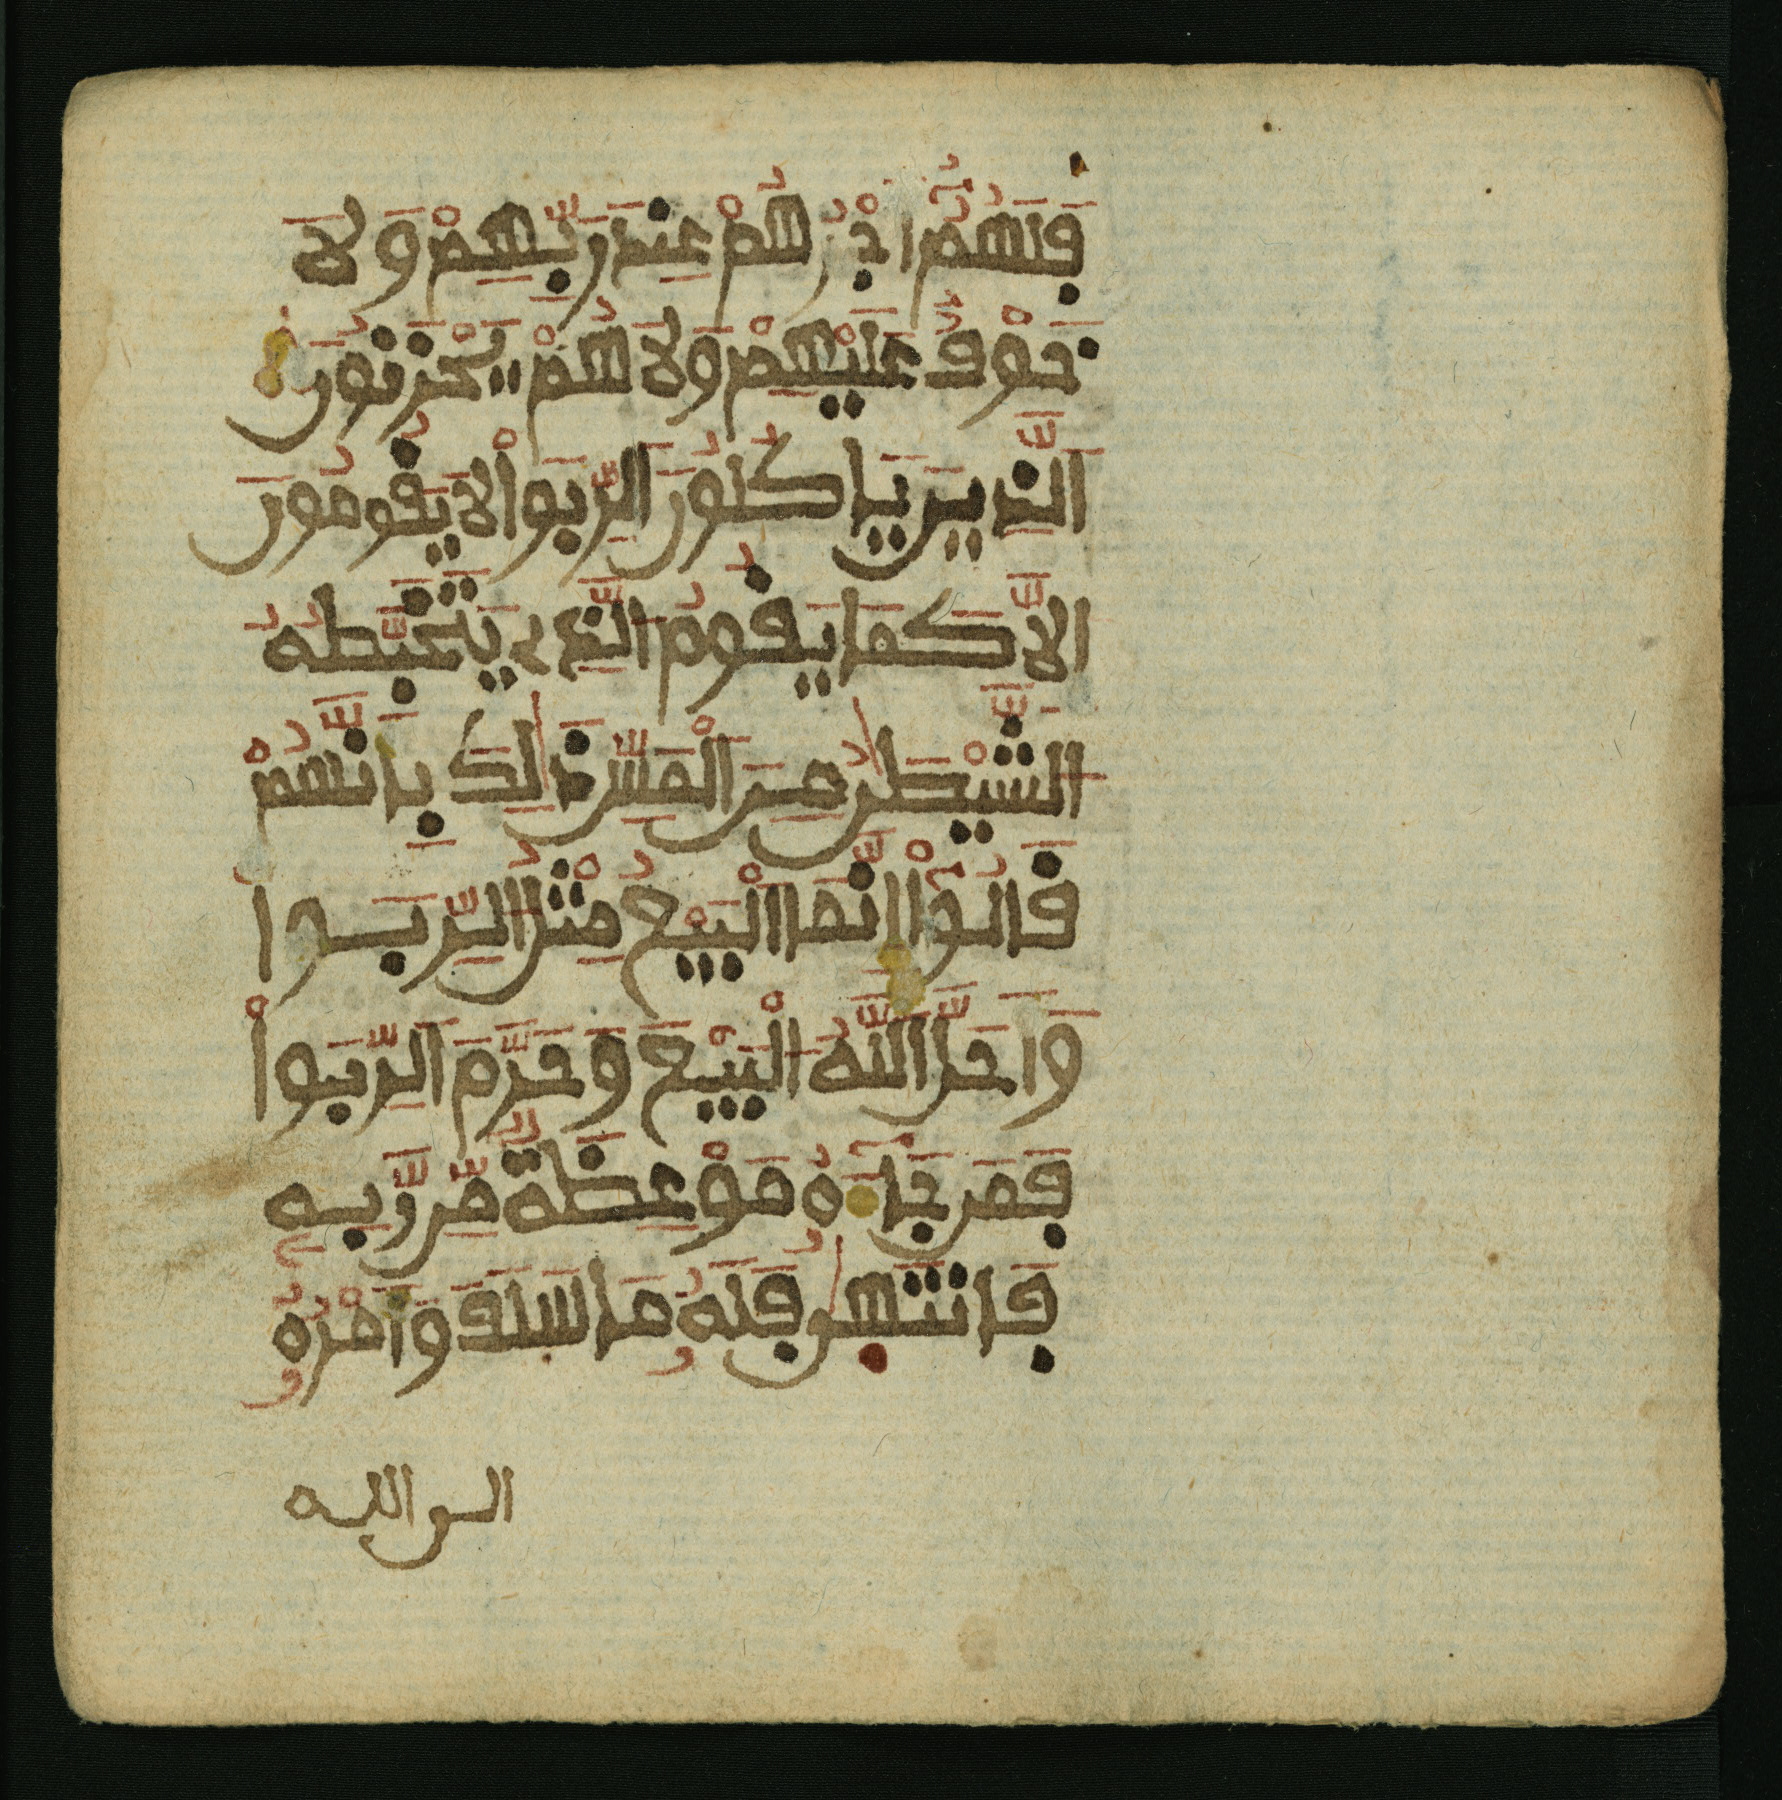 فَلَهُمُۥٓ أَجْرُهُمْ عِندَ رَبِّهِمْ وَلَا
خَوْفٌ عَلَيْهِمْ وَلَا هُمْ يَحْزَنُونَ
اَلَّذِينَ يَاكُلُونَ اَلرِّبَوٰاْ لَا يَقُومُونَ
إِلَّا كَمَا يَقُومُ اُلَّذِے يَتَخَبَّطُهُ
اُلشَّيْطَٰنُ مِنَ اَلْمَسِّ ذَٰلِكَ بِأَنَّهُمْ
قَالُوٓاْ إِنَّمَا اَلْبَيْعُ مِثْلُ اُلرِّبَوٰا
وَأَحَلَّ اَللَّهُ اُلْبَيْعَ وَحَرَّمَ اَلرِّبَوٰاْ
فَمَن جَآءَهُۥ مَوْعِظَةٌ مِّن رَّبِّهِۦ
فَانتَهَىٰ فَلَهُۥ مَا سَلَفَ وَأَمْرُهُۥٓ
الى الله